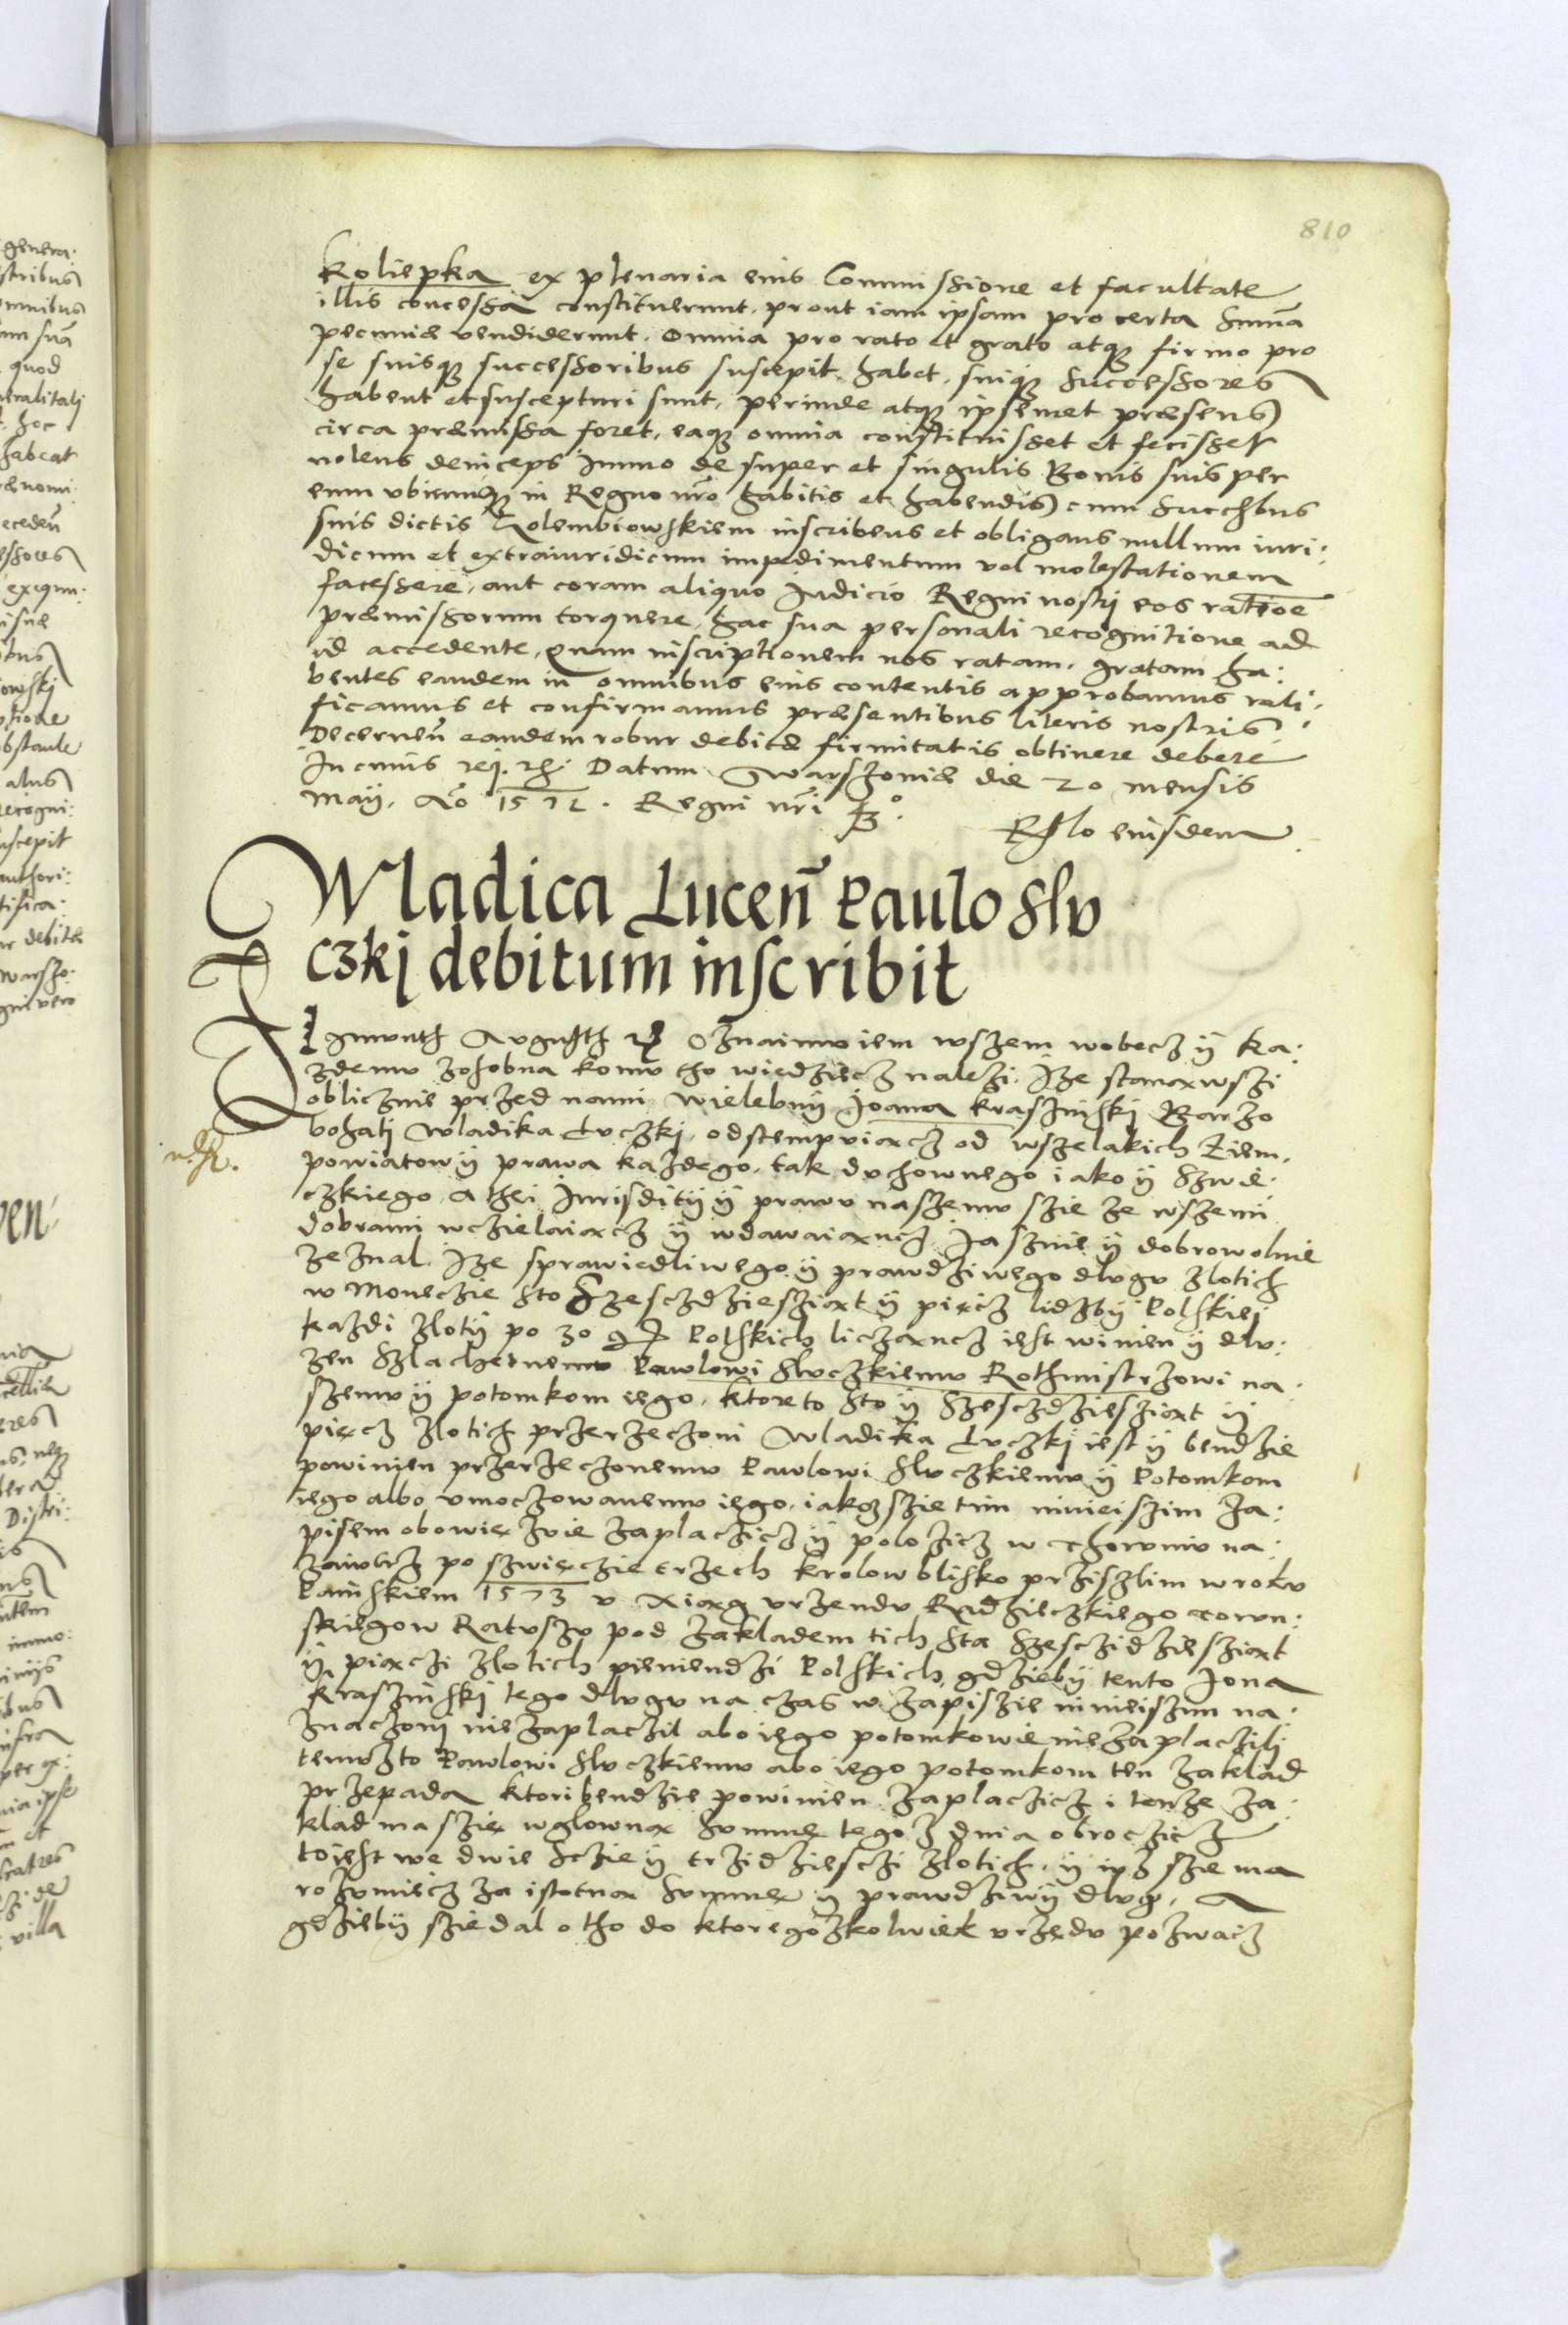 810
Koliepka ex plenaria eius Commissione et facultate
illis concessa constituerunt, prout iam ipsam pro certa summa
pecuniæ vendiderunt. Omnia pro rato et grato atqz firmo pro
se suisqz successoribus suscepit habet, suiqz successores
habent et suscepturi sunt, perinde atqz ipsemet præsens
circa præmissa foret, eaqz omnia constituisset et fecisset
nolens deinceps Immo de super et singulis Bonis suis per
eum vbicunqz in Regno nro habitis et habendis cum succbus
suis dictis Holembiowskiem inscribens et obligans nullum iuri:
dicum et extraiuridicum impedimentum vel molestationem
facessere, aut coram aliquo Iudicio Regni nostri eos ratioe
præmissorum torquere, hac sua personali recognitione ad
id accedente, quam inscriptionem nos ratam, gratam ha:
bentes eandem in omnibus eius contentis approbamus rati:
ficamus et confirmamus præsentibus literis nostris
Decernen eandem robur debitæ firmitatis obtinere debere
In cuius rej. Datum Warszoviæ die 20 mensis
Maÿ. Ao 1572. Regni nri 43°
Rlo eiusdem
Wladica Lucen Paulo Slv
czkj debitum inscribit
Zigmunth Avgusth Oznaimuiem wszem wobecz ÿ ka:
zdemv zosobna komv tho wiedzilecz nalezi. Ize stanawszi
obliczniе przed nami Wielebnÿ Joana Krasziński Barzo
bohatj Wladika Lvczkj, odstempviaxcz od wszelakich Ziem,
powiatow ÿ prawa kazdego, tak dvchownego iako ÿ Szwie:
czkiego a thei Jurisditÿ ÿ prawv naszemv szie ze wszemi
dobrami wczielaiaxcz ÿ wdawaiaxncz Jasznie ÿ dobrowolnie
zeznal. Ize sprawiedliwego ÿ prawdziwego dlvgv zlotich
w Moneczie sto Szesczdziesziaxt ÿ pięcz lidzbÿ Polskiej
kazdi zlotÿ po 30 gr Polskich liczaxncz iest winien ÿ dlv:
zen Szlachetnemv Pawlowi Slvczkiemv Rothmistrzowi na:
szemv ÿ potomkom iego, ktoreto sto ÿ Szesczdziesziaxt ÿ
pięcz zlotich przerzeczoni Wladika Lvczkj iest ÿ bendzie
powinien przerzeczonemv Pawlowi Slvczkiemv ÿ Potomkom
iego albo vmoczowanemv iego, iakoz szie tim ninieiszim Za:
pisem obowięzvie zaplaczicz ÿ polozicz w na:
zaivtrz po szwięczie trzech krolow blisko prziszlim w rokv
Painskiem 1573 v Xiaxg vrzendv Radzieczkiego
skiegow Ratvszv pod zakladem tich sta Szesczidziesziaxt
ÿ piaxczi zlotich pieniendzi Polskich, gdziebÿ tento Jona
Krasziński tego dlvgv na czas w zapiszie ninieiszim na:
znaczonj niezaplaczil abo iego potomkowie niezaplaczilj
temvzto Pawlowi Slvczkiemv abo iego potomkom ten zaklad
przepada ktori bendzie powinien zaplaczicz i tenze za:
klad ma szię wglownax svmmę tegoz dnia obroczicz
toiest we dwie scie ÿ trzidziesczi zlotich, ÿ ivz szie ma
rozvmiecz za istotnax svmmę ÿ prawdziwÿ dlvg, a
gdziebÿ szie dal o tho do ktoregozkolwiek vrzędv pozwacz